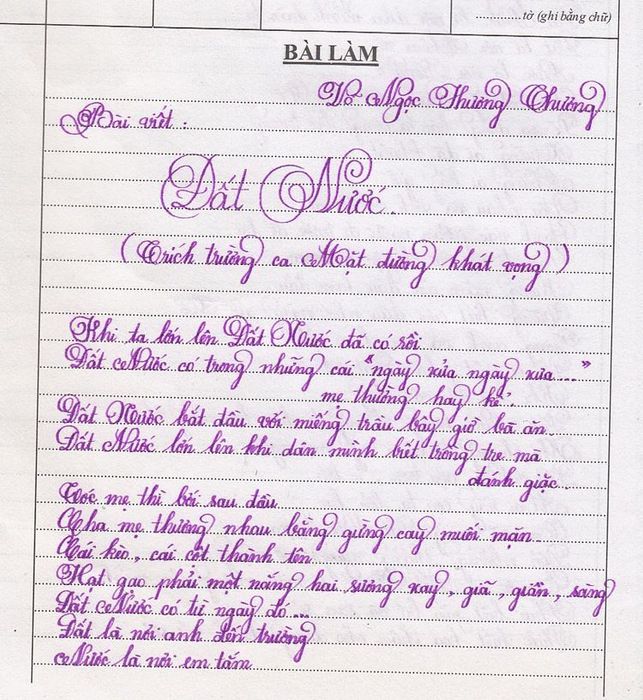 ............tờ (ghi bằng chữ)
BÀI LÀM
Võ Ngọc Thương Thương
Bài viết :
Đất Nước.
( Trích trường ca Mặt đường khát vọng )
Khi ta lớn lên Đất Nước đã có rồi
Đất Nước có trong những cái "ngày xửa ngày xưa..."
mẹ thường hay kể.
Đất Nước bắt đầu với miếng trầu bây giờ bà ăn
Đất Nước lớn lên khi dân mình biết trồng tre mà
đánh giặc.
Tóc mẹ thì bới sau đầu
Cha mẹ thương nhau bằng gừng cay muối mặn
Cái kèo, cái cột thành tên
Hạt gạo phải một nắng hai sương xay, giã, giần, sàng
Đất Nước có từ ngày đó...
Đất là nơi anh đến trường
Nước là nơi em tắm